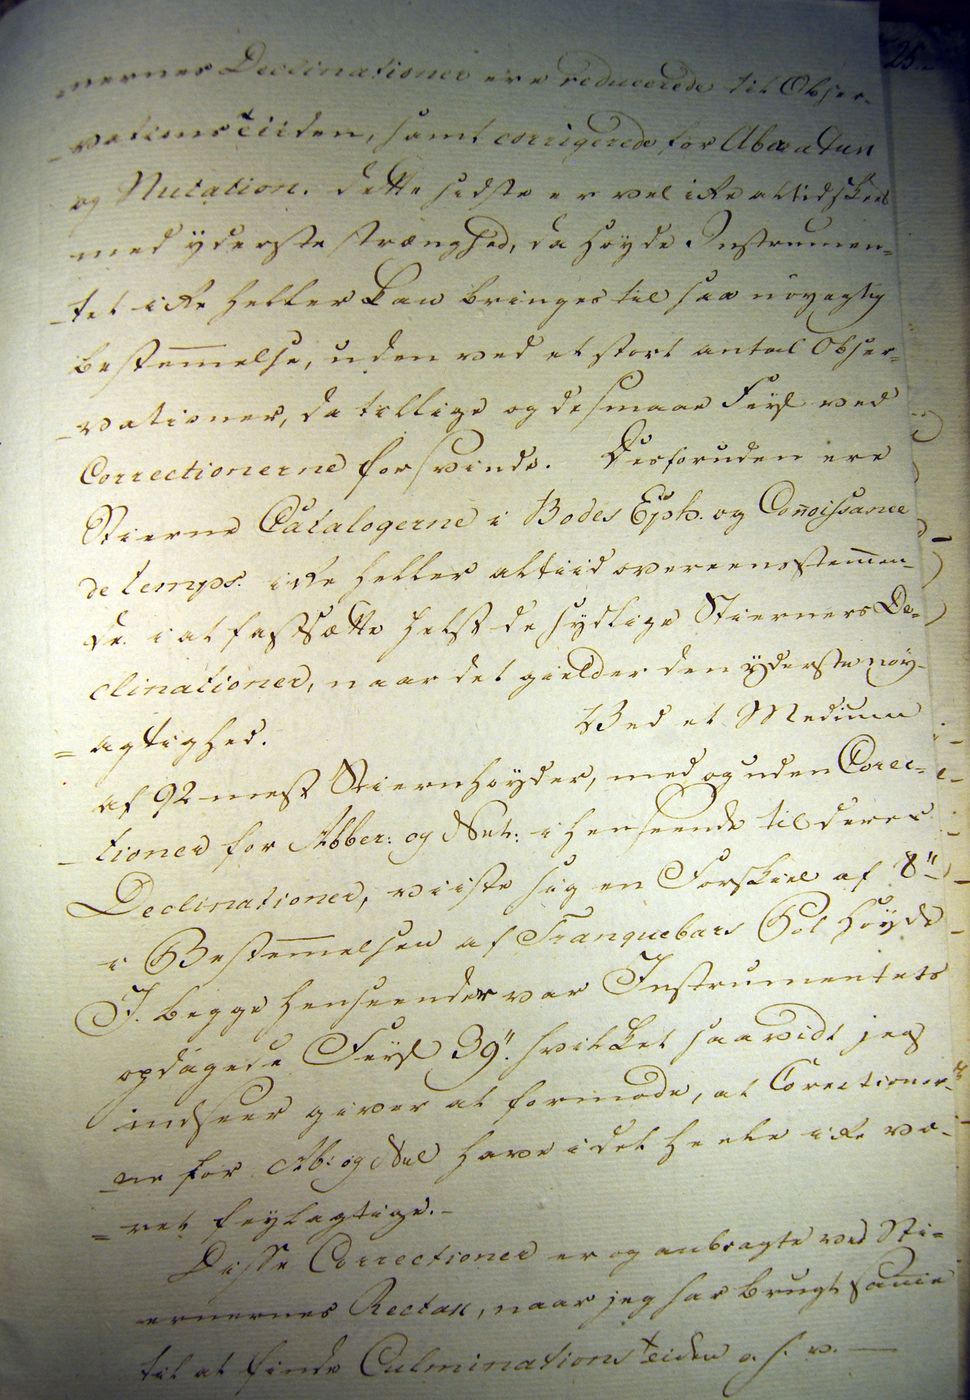 25.
nernes Declinationer ere reducerede til Obser-
-vations tiiden, samt corrigerede for Aberation
og Nutation. dette sidste er vel ikke altid skeet
med yderste strænghed, da høyde Instrumen=
-tet ikke heller kan bringes til saa nøyagtig
bestem̅else, uden ved et stort antal Obser=
-vationer, da tillige og de smaae Feyl ved
Correctionerne forsvinde. Desforuden ere
Stierne Catalogerne i Bodes Eph. og Con̅oissance
de temps. ikke heller altiid overeenstem̅en-
de i at fastsætte helst de sydlige Stierners De=
clinationer, naar det gielder den yderste nøy-
=agtighed. Ved et Medium
af 92 mest Stiernhøyder, med og uden Corec=
-tioner for Abber: og Nut: i henseende til deres
Declinationer, viiste sig en Forskiel af 8"
i Bestem̅elsen af Tranquebars Pol Høyde
I. begge henseender var Instrumentets
opdagede Feyl 39". hvilket saavidt jeg
indseer giver at formode, at Corectioner-
-ne for Ab: og Nut have i det heele ikke væ-
=ret feylagtige.-
Disse Correctioner er og anbragte ved Sti=
ernernes Rectas, naar jeg har brugt sam̅e
til at finde Culminations teiden o. s. v. —